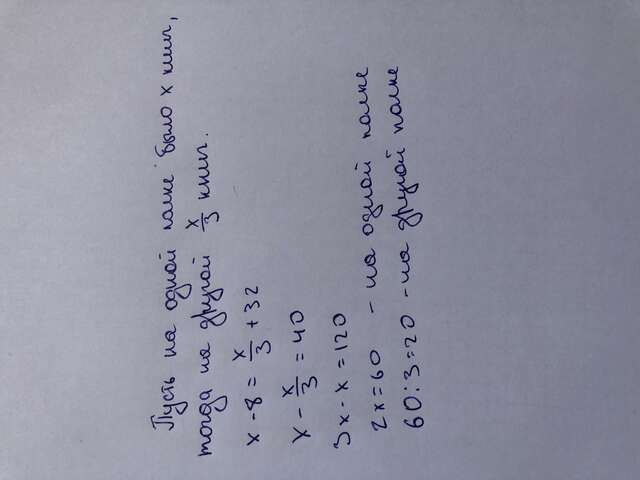 Пусть на одной полке было x книг,
тогда на другой x/3 книг.
x - 8 = x/3 + 32
x - x/3 = 40
3x - x = 120
2x = 60 - на одной полке
60 : 3 = 20 - на другой полке